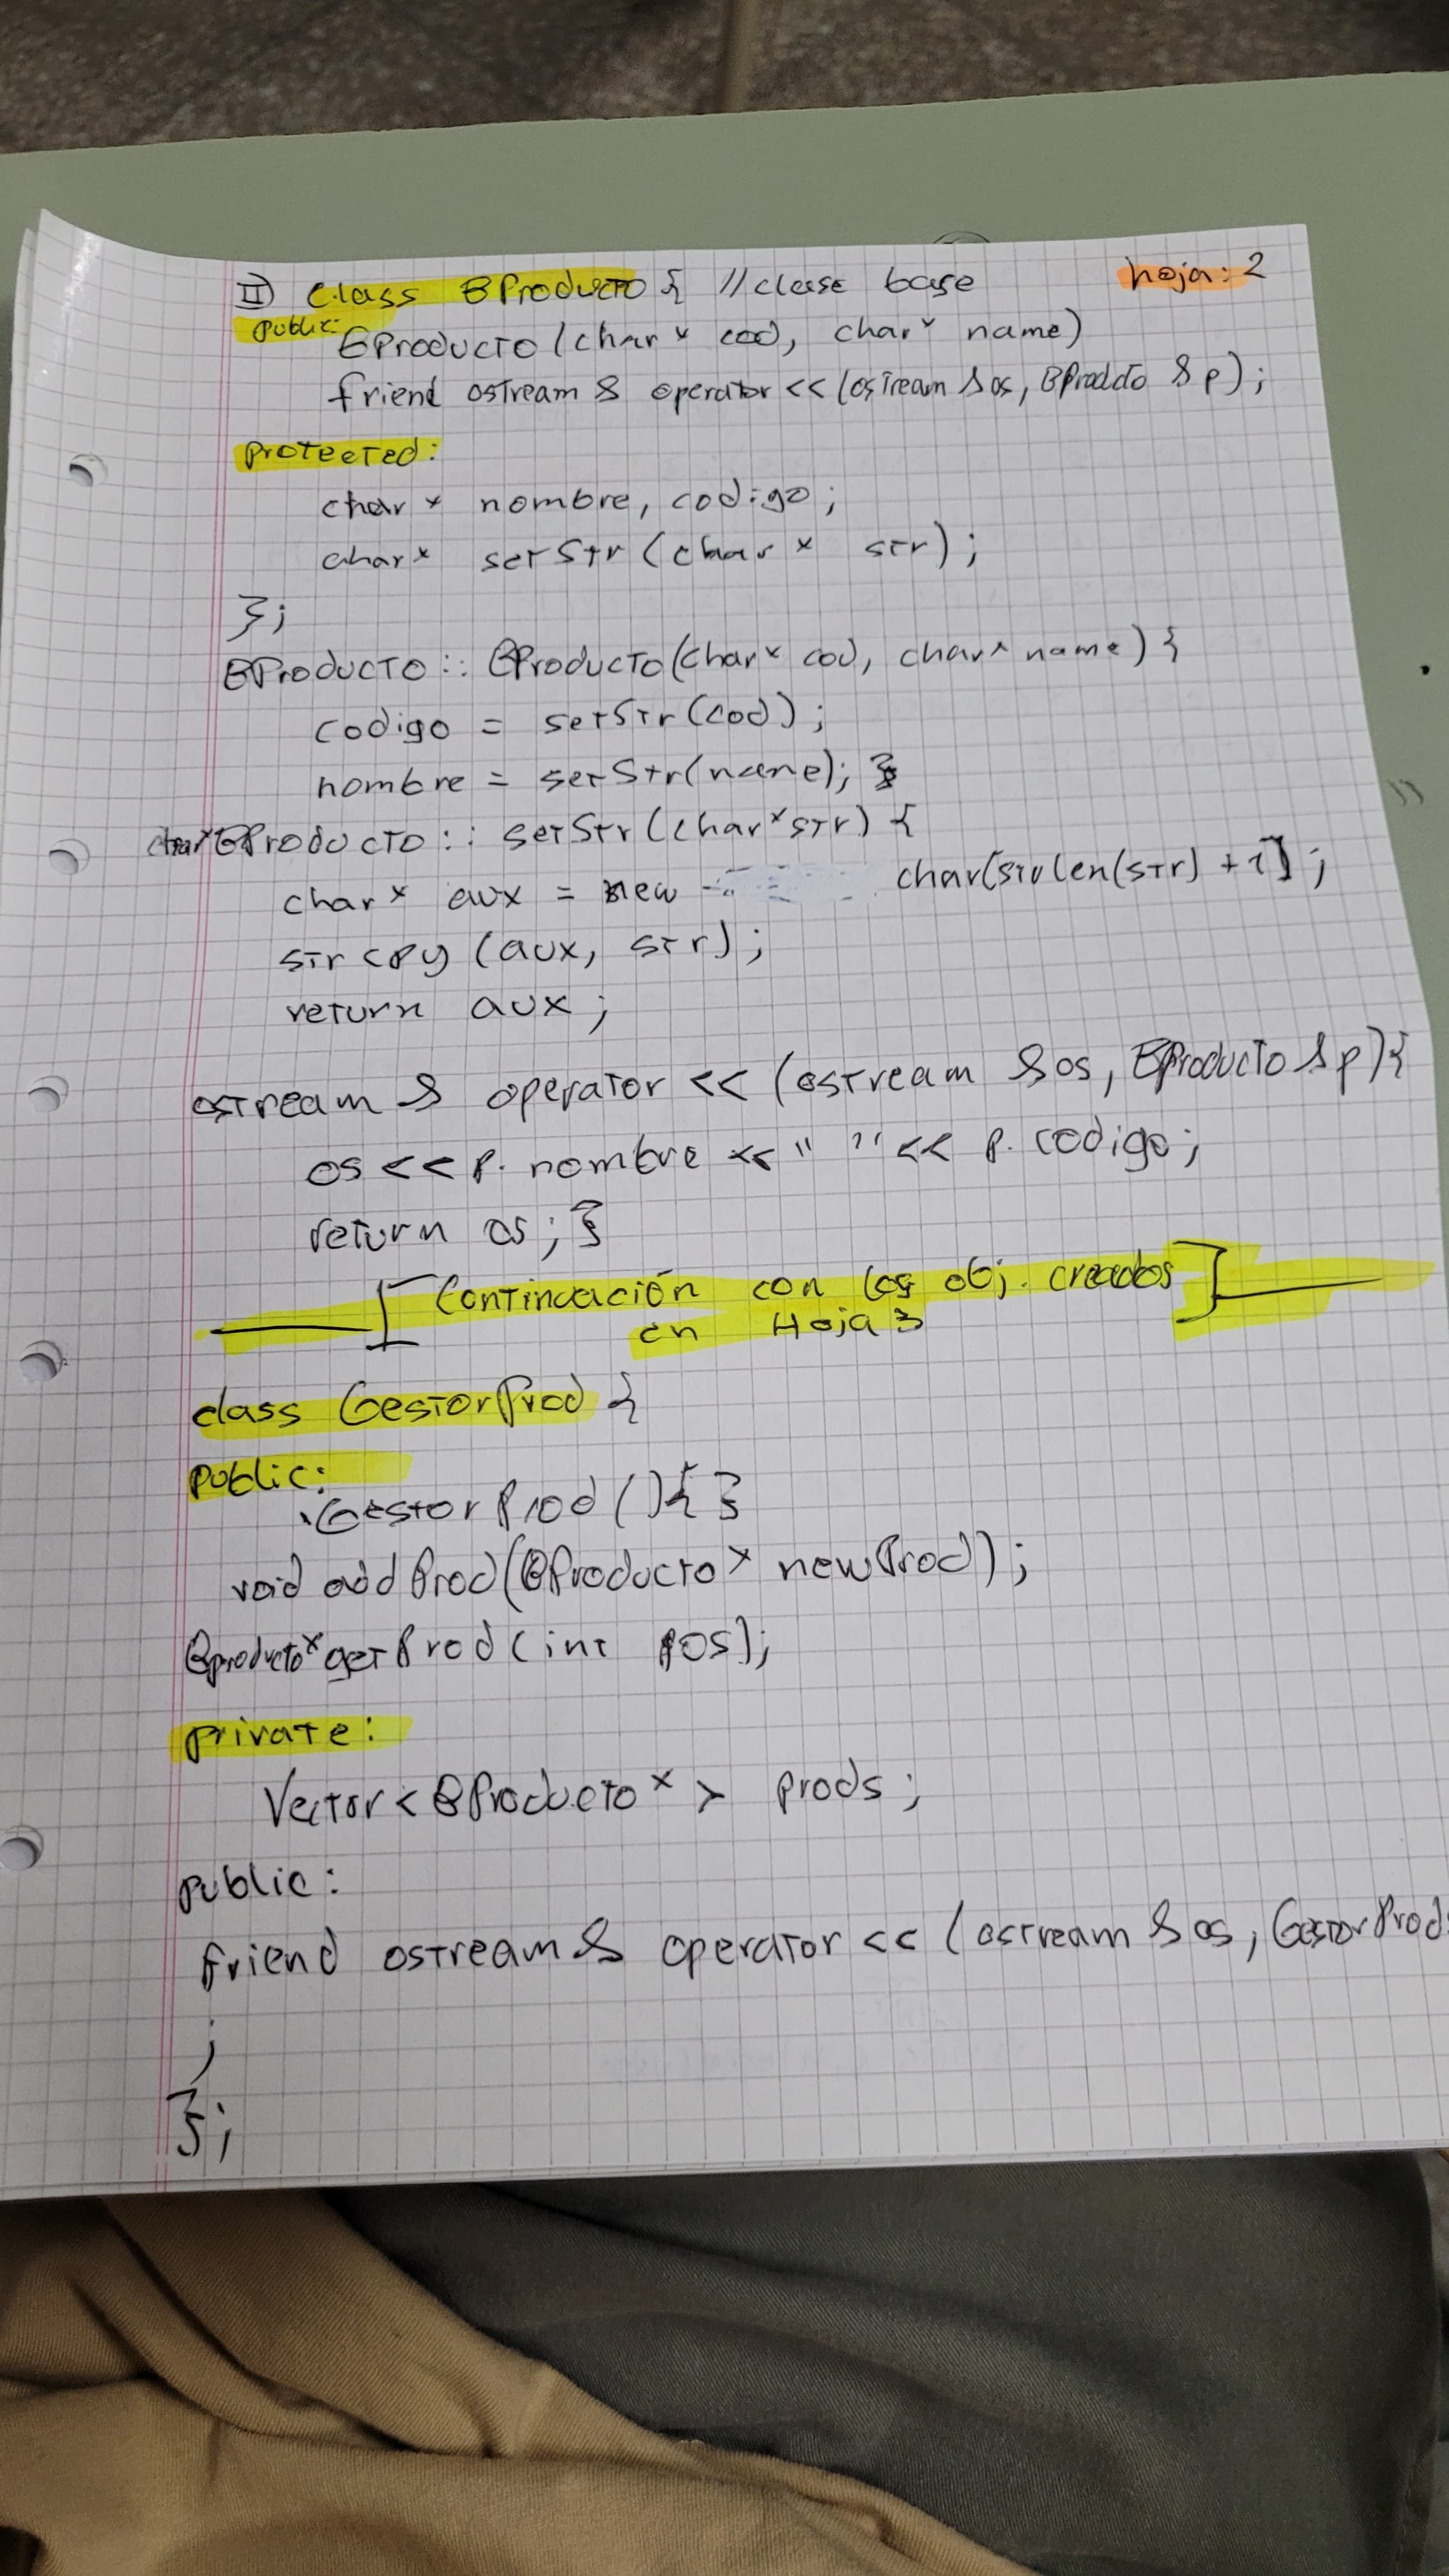 II) Class BProducto { //clase base hoja: 2
public:
BProducto (char * cod, char * name)
friend ostream & operator << (ostream &os, BProdcto & p);
protected:
char * nombre, codigo;
char * setStr (char * str);
};
BProducto :: BProducto (char * cod, char * name) {
codigo = setStr (cod);
nombre = setStr (name); }
char* BProducto :: setStr (char * str) {
char * aux = new char[strlen(str) + 1];
strcpy (aux, str);
return aux;
ostream & operator << (ostream &os, BProducto &p){
os << p. nombre << " " << p. codigo;
return os; }
[Continuación con los obj. creados]
en Hoja 3
class GestorProd {
public:
GestorProd () { }
void addProd (BProducto * newProd);
Bproducto* getProd (int pos);
private:
Vector < BProducto * > prods;
public:
friend ostream & operator << (ostream & os, GestorProd
;
};